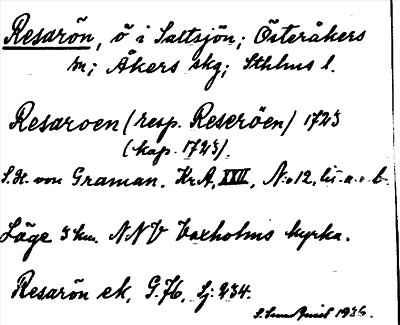 Resarön, ö i Saltsjön; Österåkers
sn; Åkers skg; Sthlms l.
Resaroen (resp. Reseröen) 1723
(kop. 1723).
S.H. von Graman. Kr.A, XXVI, N:o 12, lit. a. o. b.
Läge 3 km. NNV Vaxholms kyrka.
Resarön ek, G.76, Lj: 234.
1936